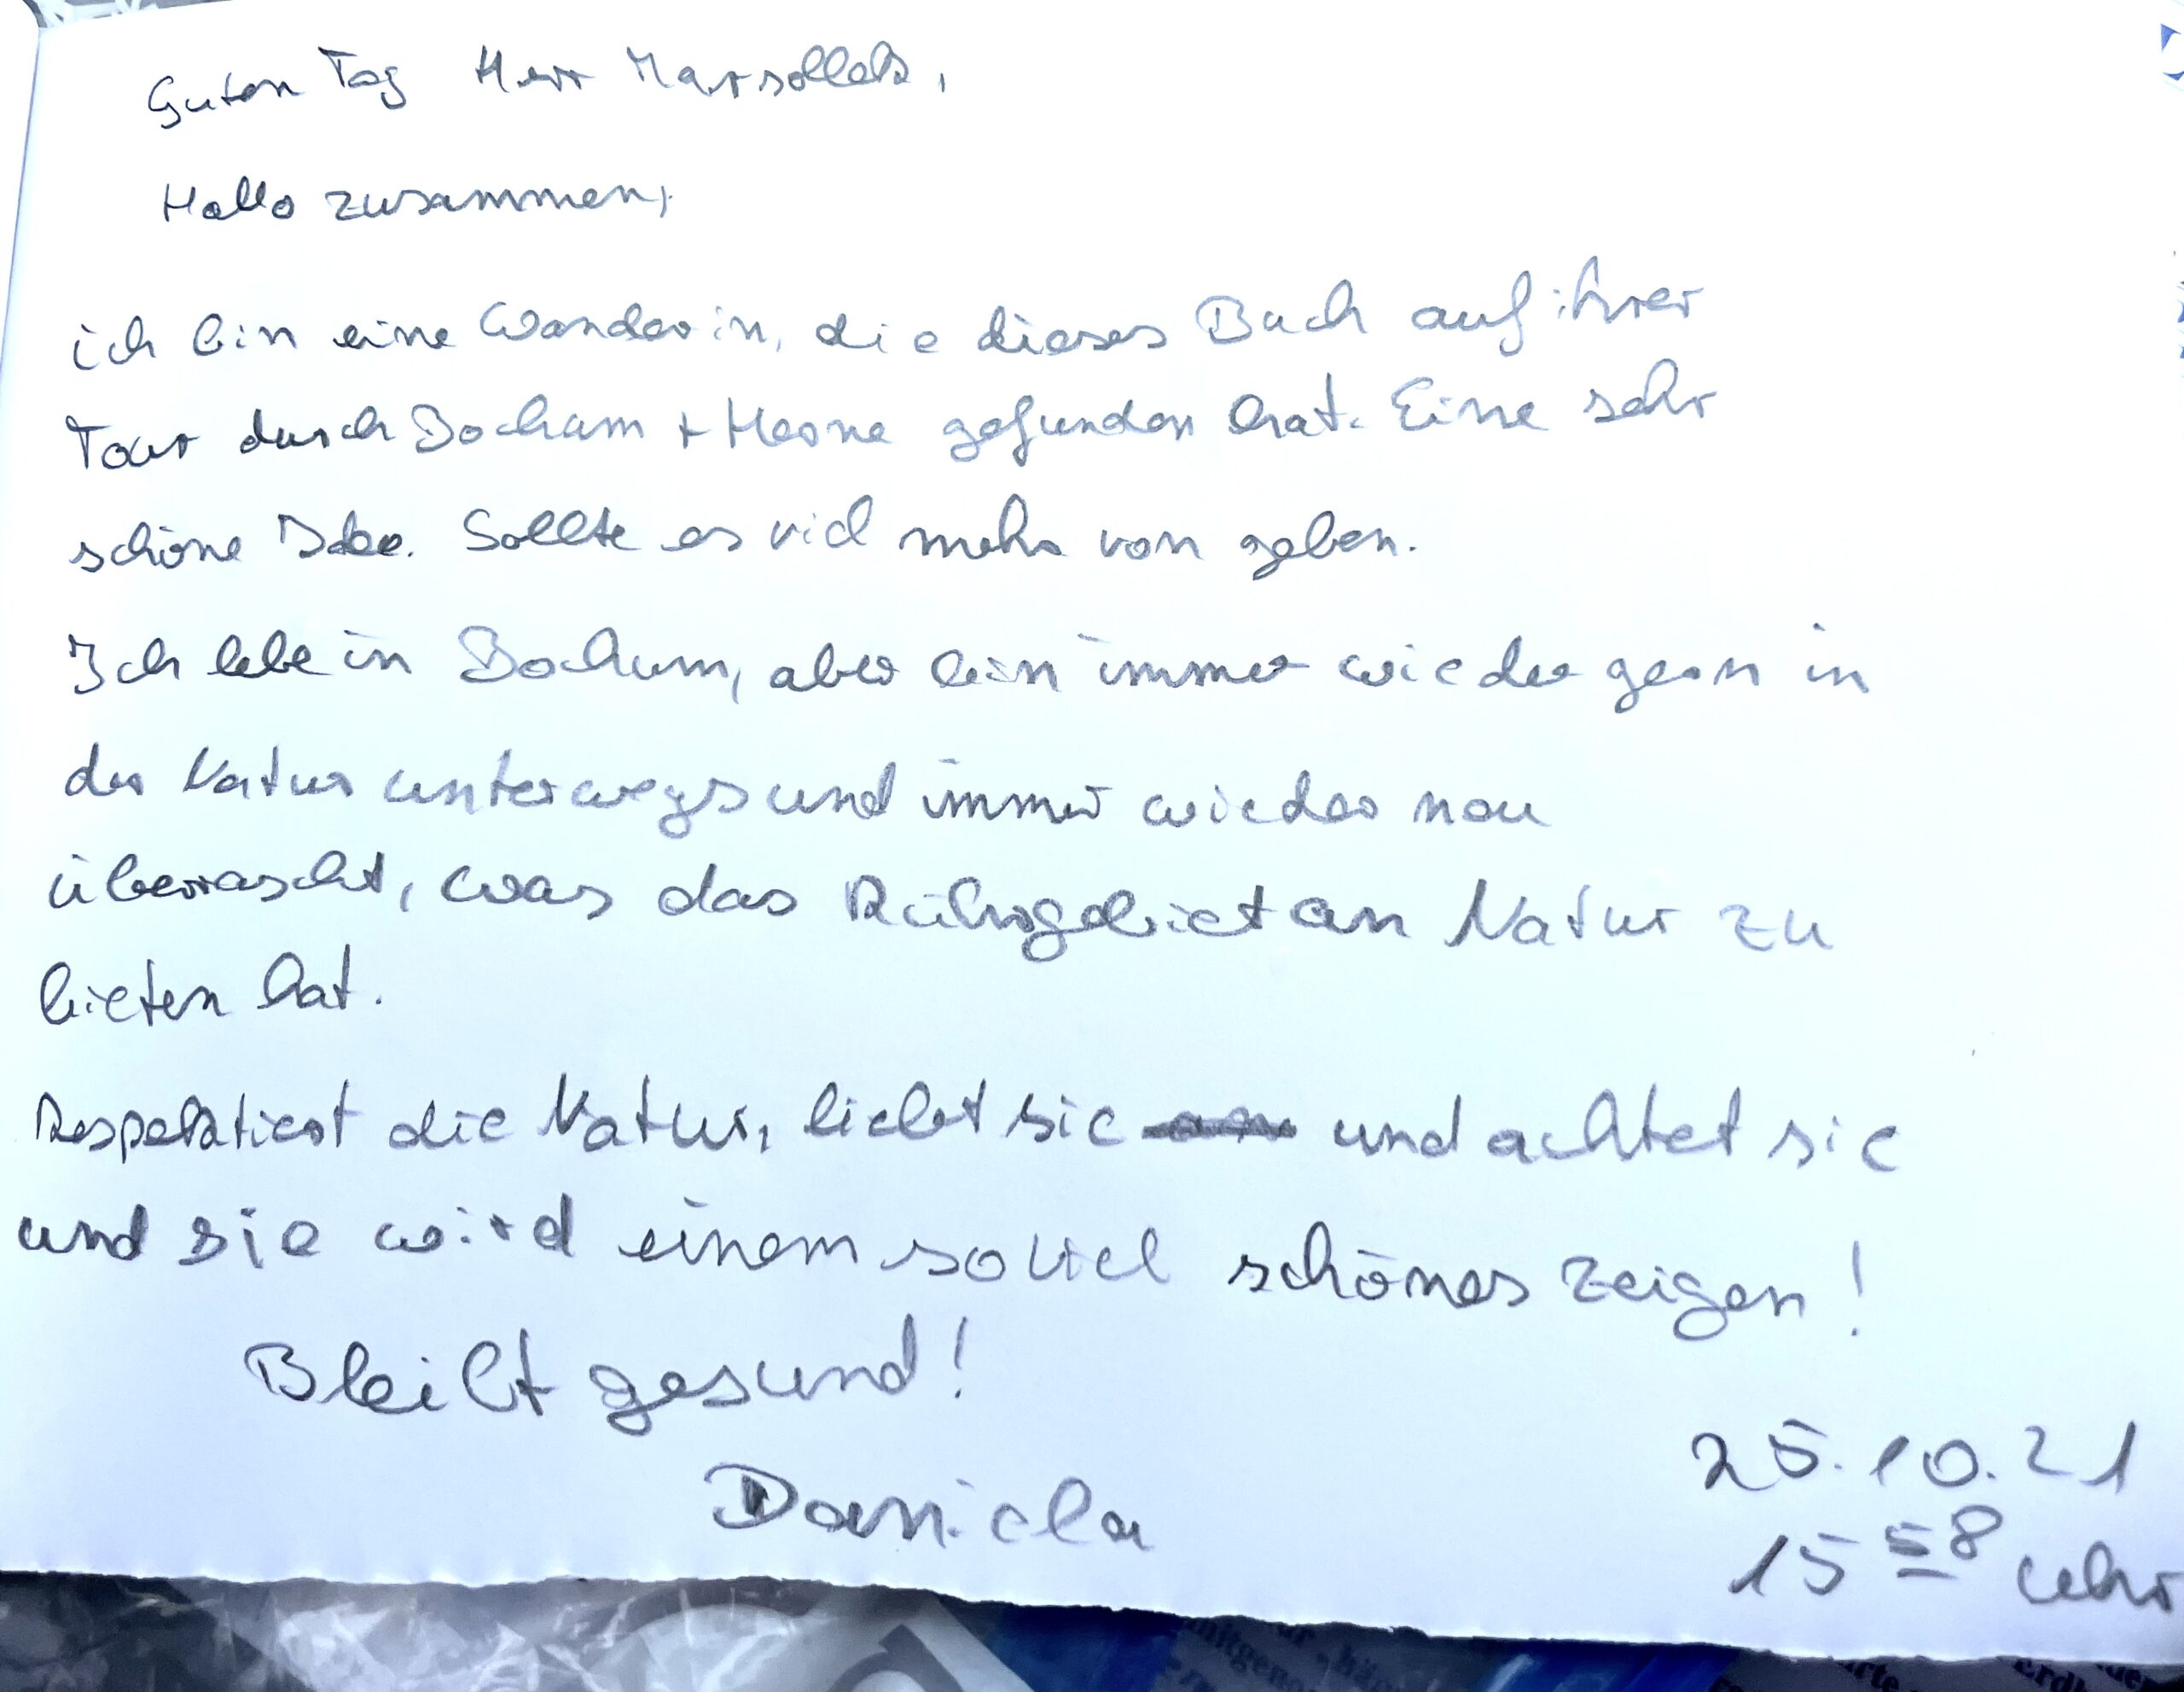 Guten Tag Herr
Hallo zusammen,
ich bin eine Wanderin, die dieses Buch auf ihrer
Tour durch Bochum + Herne gefunden hat. Eine sehr
schöne Idee. Sollte es viel mehr von geben.
Ich lebe in Bochum, aber bin immer wieder gern in
der Natur unterwegs und immer wieder neu
überrascht, was das Ruhrgebiet an Natur zu
bieten hat.
Respektiert die Natur, liebt sie und achtet sie
und sie wird einem soviel schönes zeigen!
Bleibt gesund!
Daniela
25.10.21
15 58 Uhr